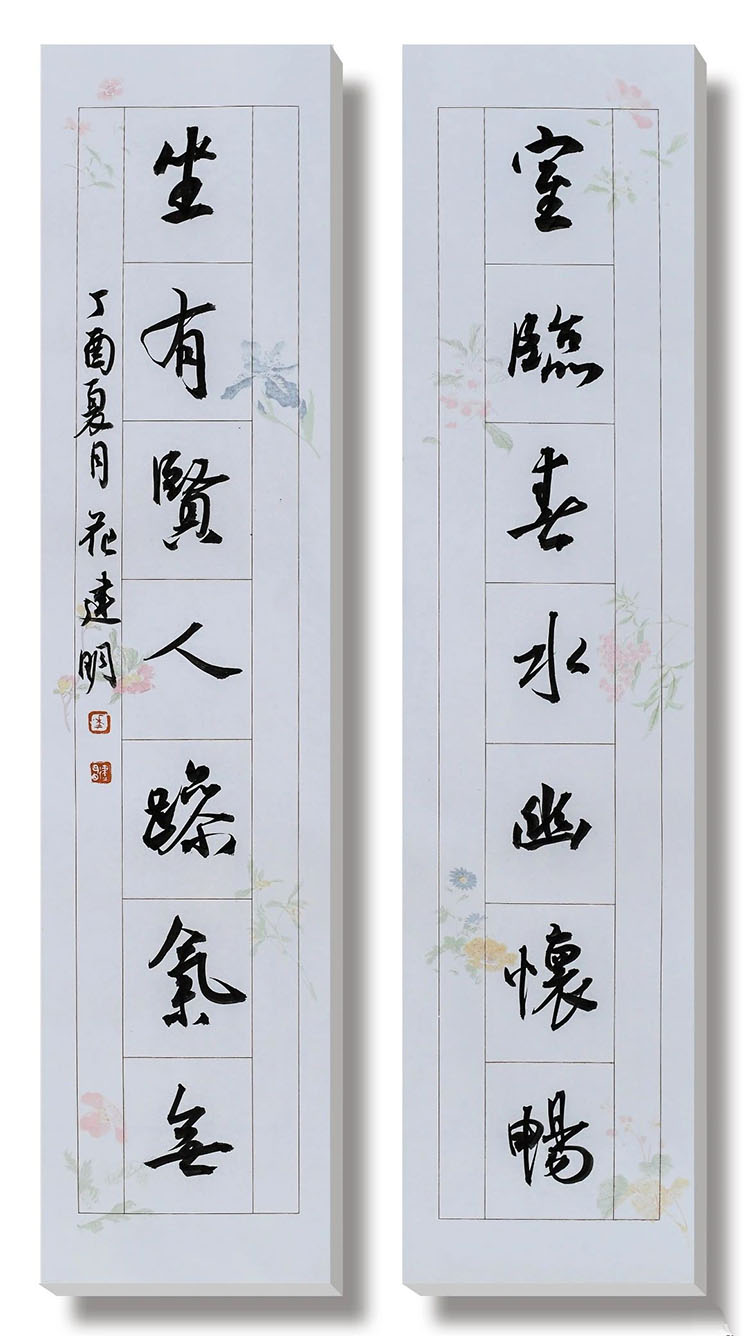 室臨春水幽懷暢
坐有賢人躁氣無
丁酉夏月花建明